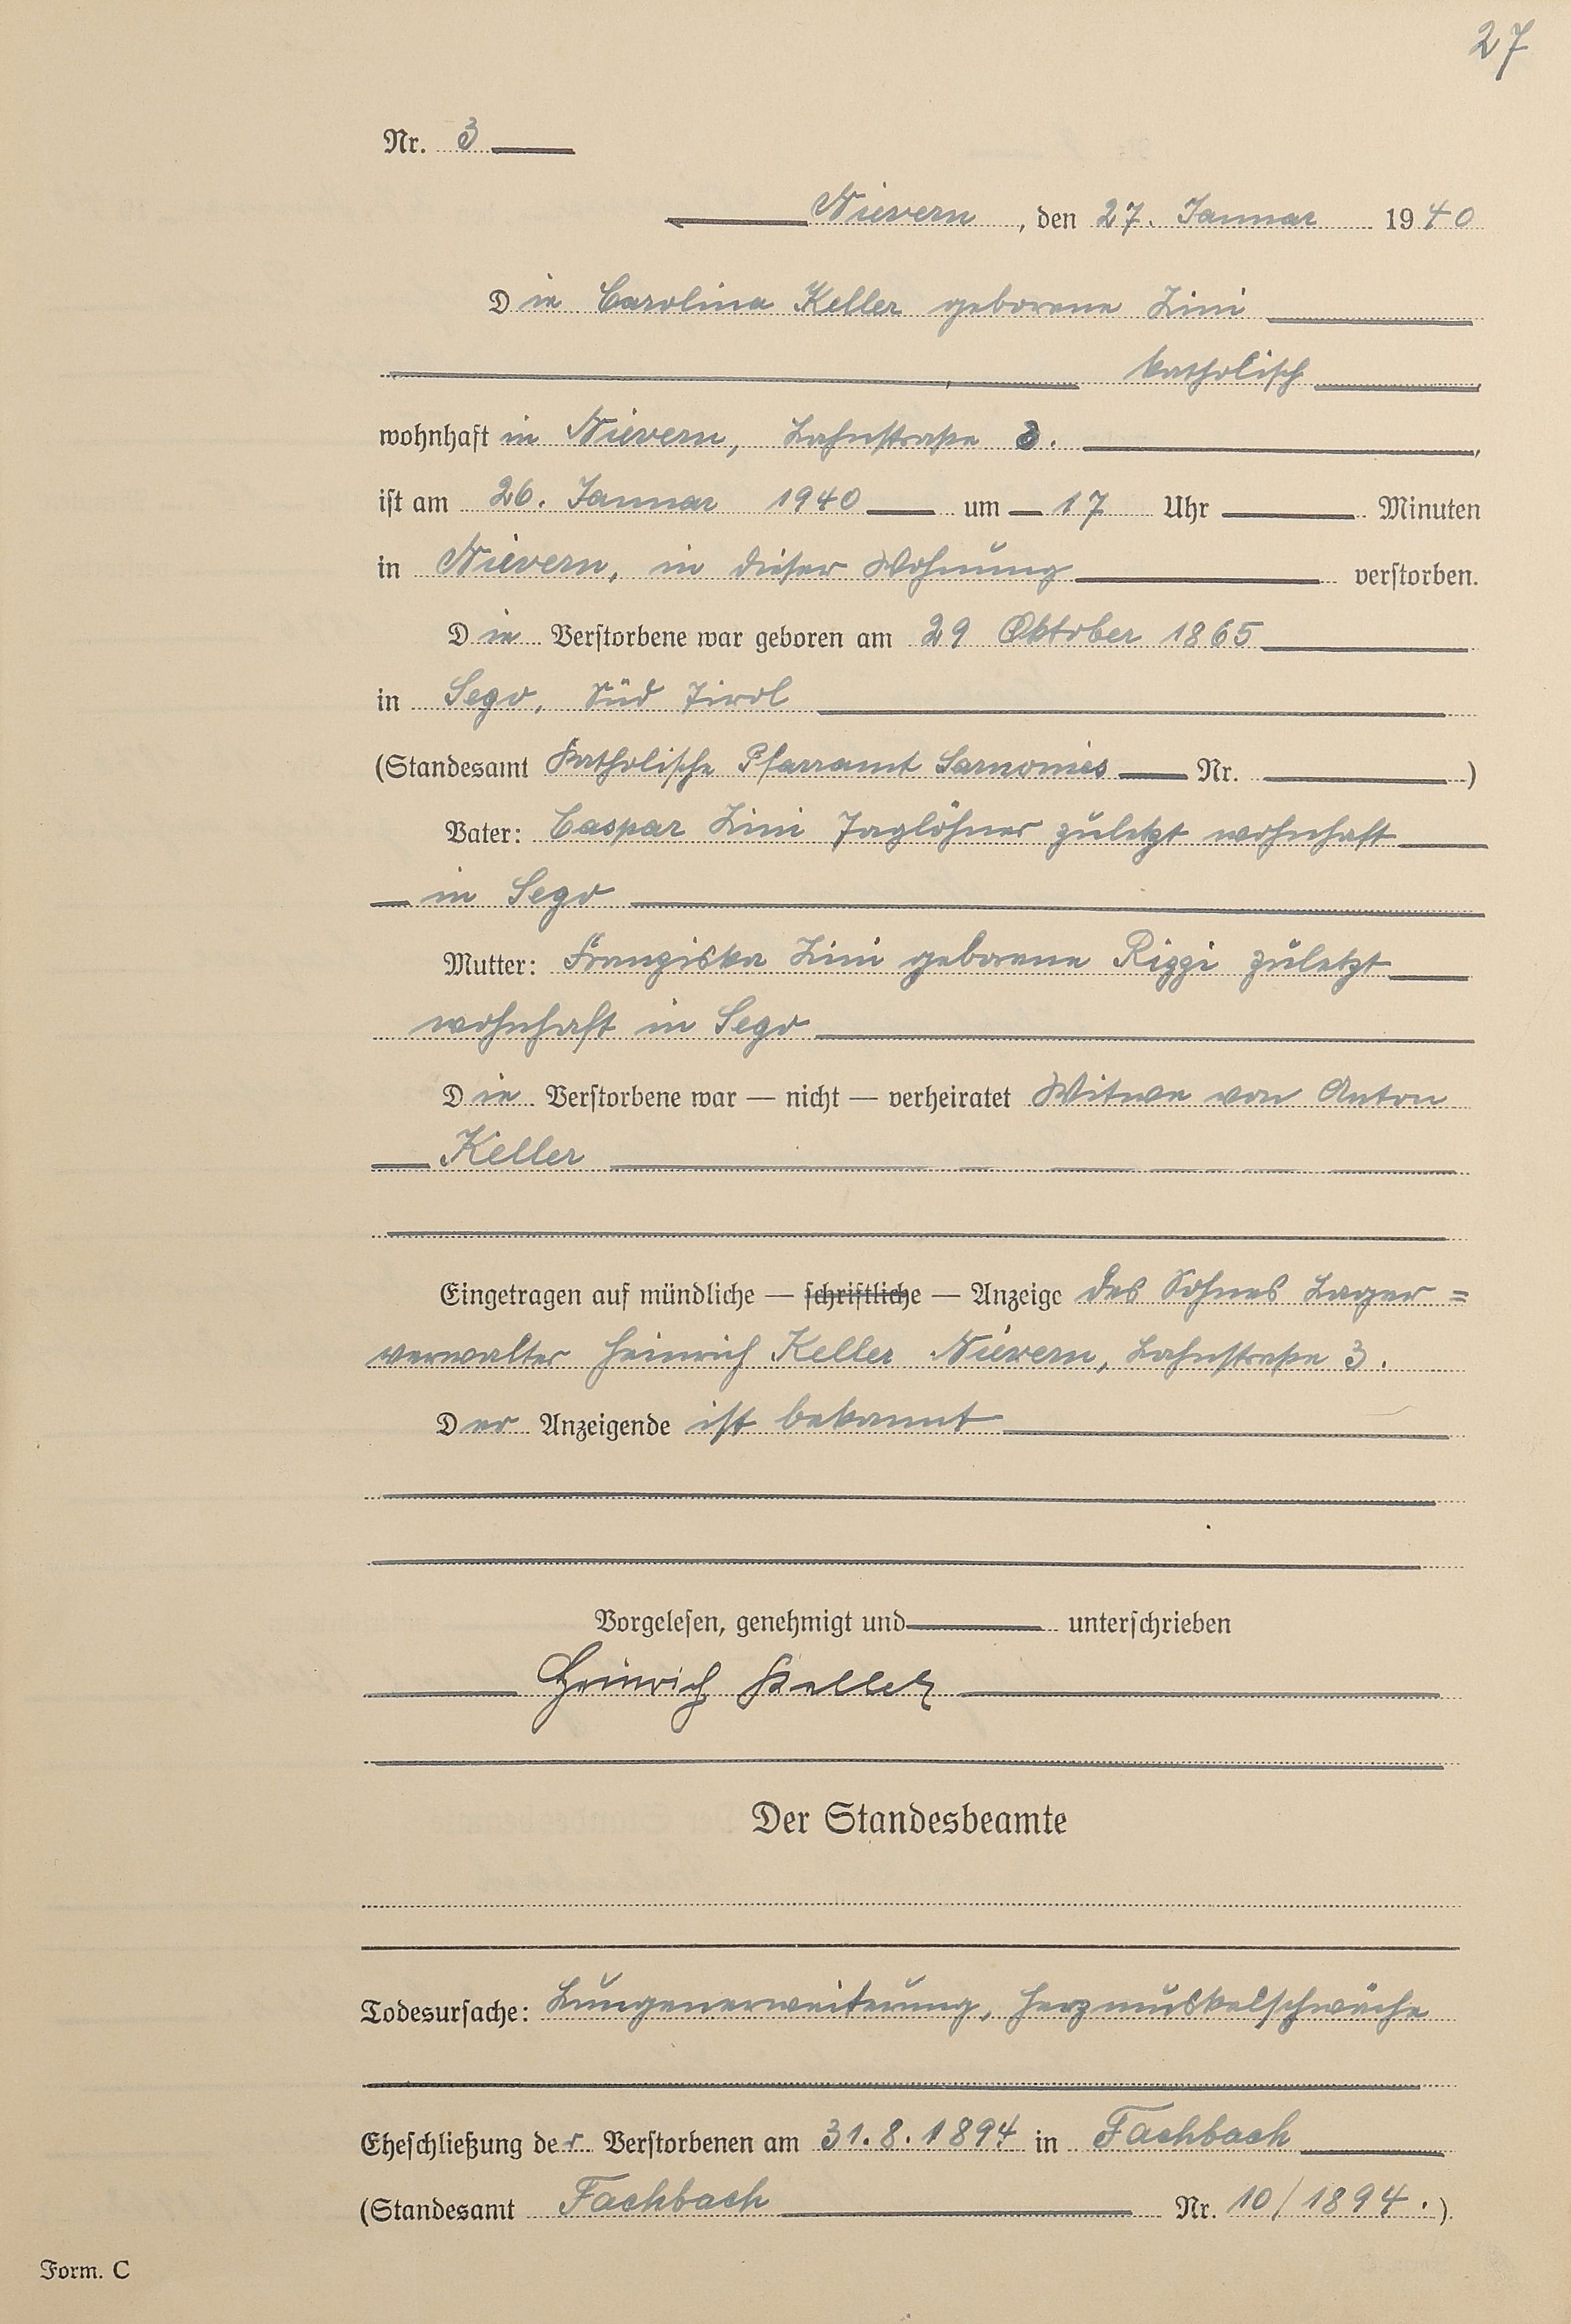 27
Nr. 3
Nievern, den 27. Januar 1940
Die Carolina Keller geborene Zini
katholisch
wohnhaft in Nievern, Lahnstraße 3.
ist am 26. Januar 1940 um 17 Uhr Minuten
in Nievern, in dieser Wohnung verstorben.
Die Verstorbene war geboren am 29 Oktober 1865
in Sego, Süd Tirol
(Standesamt Katholische Pfarramt Sarnonies Nr. )
Vater: Caspar Zini Taglöhner zuletzt wohnhaft
in Sego
Mutter: Franziska Zini geborene Rizzi zuletzt
wohnhaft in Sego
Die Verstorbene war — nicht — verheiratet Witwe von Anton
Keller
Eingetragen auf mündliche — schriftliche — Anzeige des Sohnes Lager=
verwalter Heinrich Keller Nievern, Lahnstraße 3.
Der Anzeigende ist bekannt
Vorgelesen, genehmigt und unterschrieben
Heinrich Keller
Der Standesbeamte
Todesursache: Lungenerweiterung, Herzmuskelschwäche
Eheschließung der Verstorbenen am 31.8.1894 in Fachbach
(Standesamt Fachbach Nr. 10/1894.)
Form. C